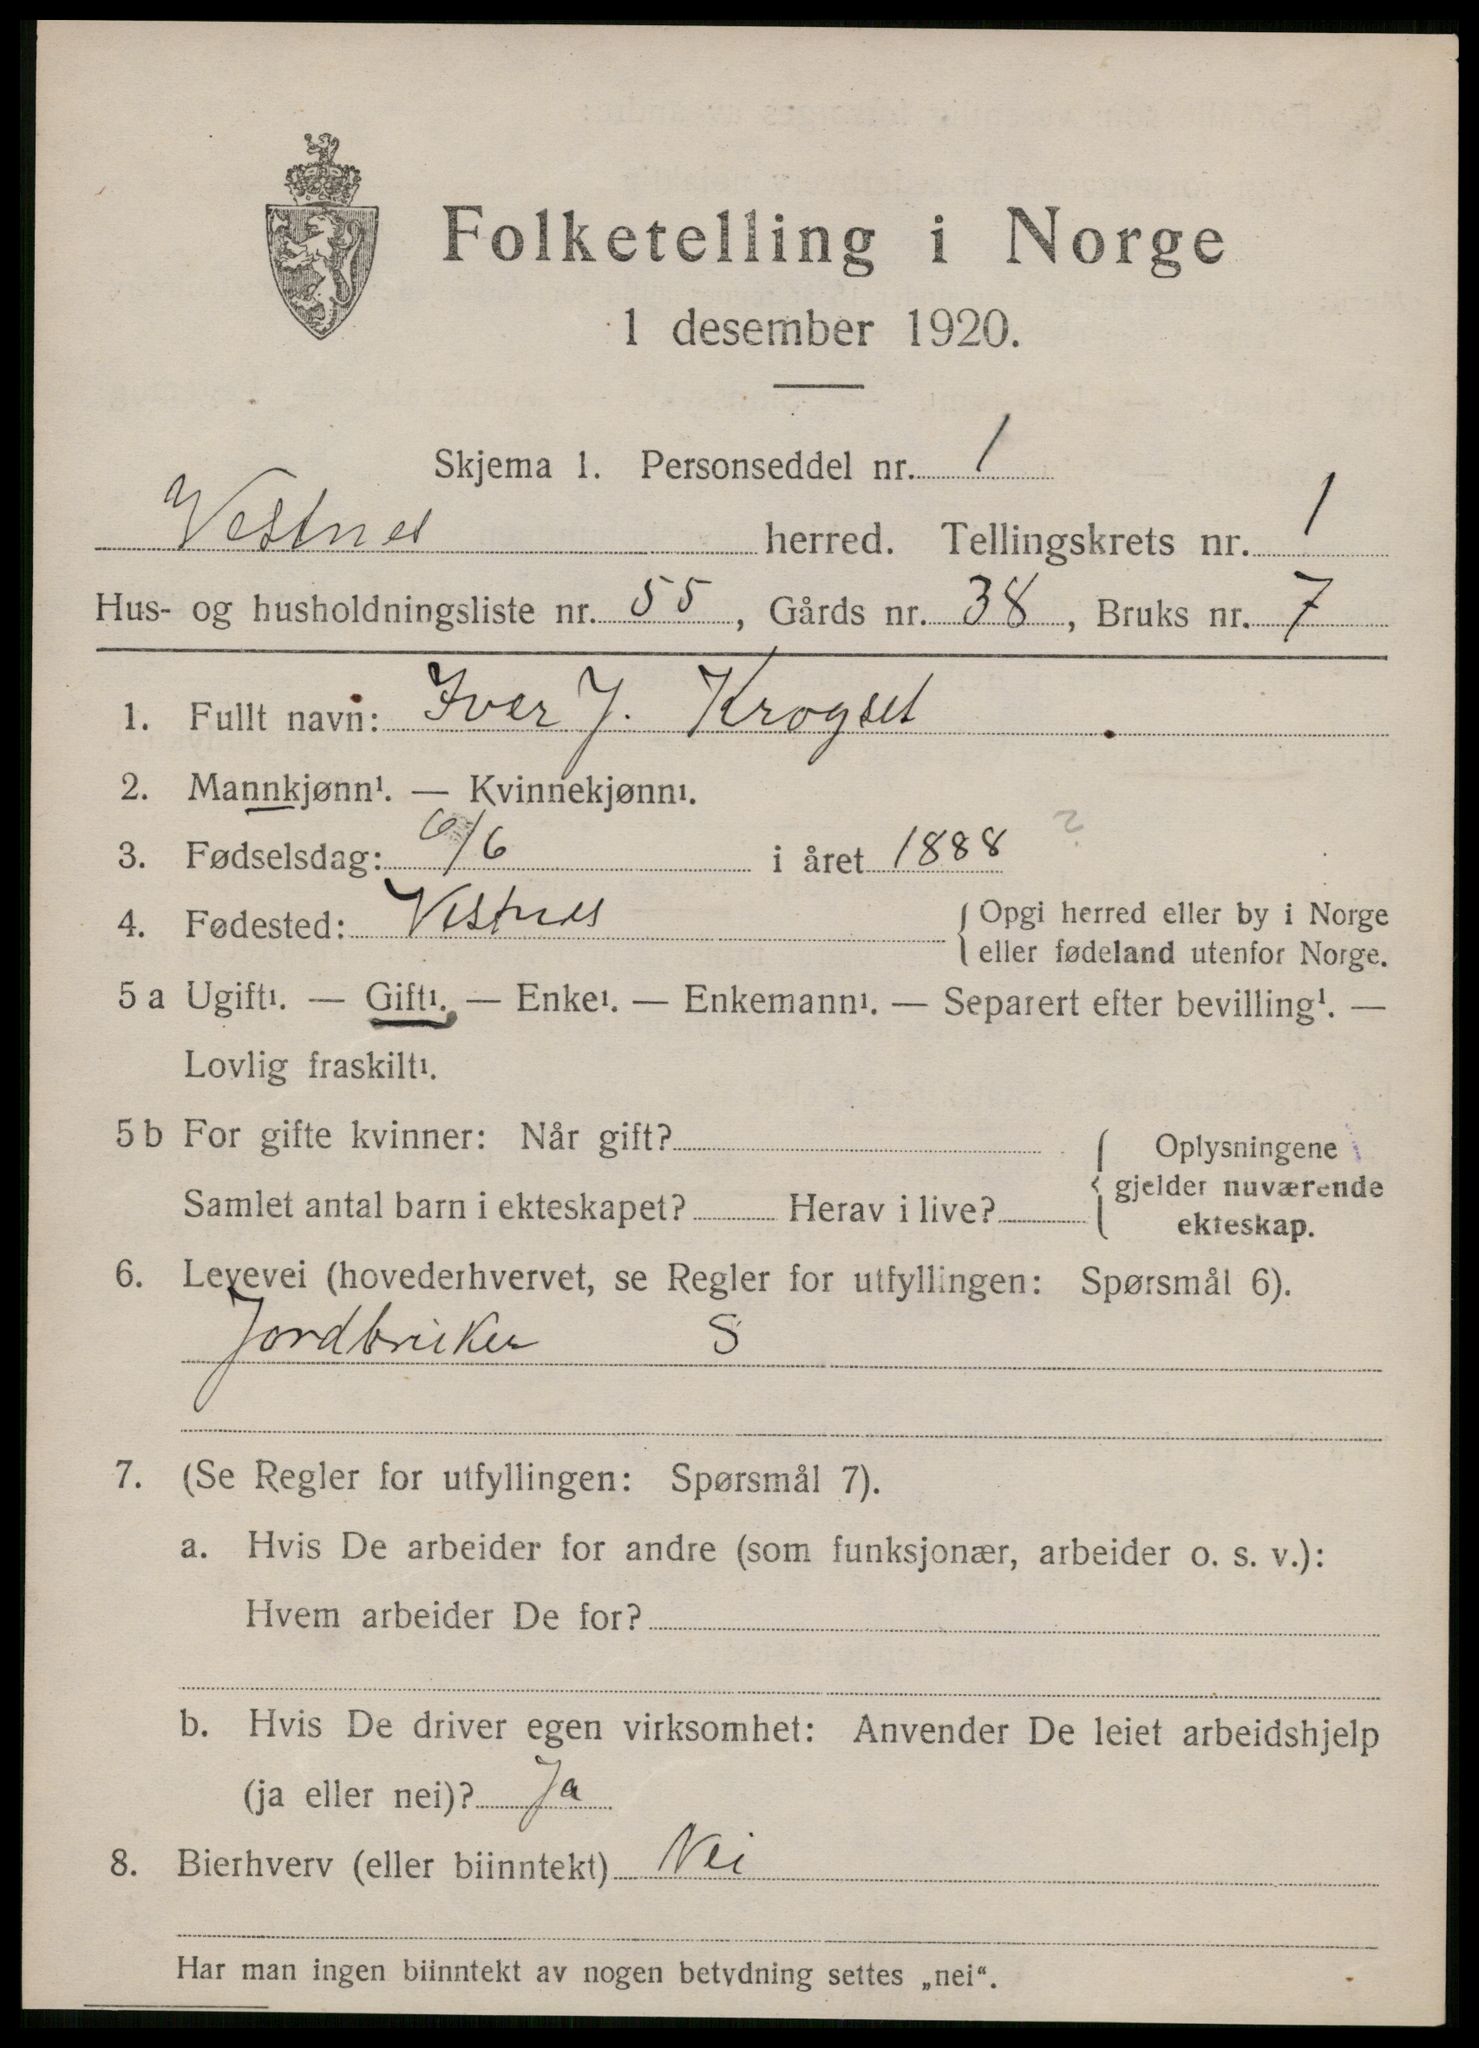 Folketelling i Norge
1 desember 1920.
Skjema 1. Personseddel nr. 1
Vestnes herred. Tellingskrets nr. 1
Hus- og husholdningsliste nr. 55, Gårds nr. 38, Bruks nr. 7
1. Fullt navn: Iver J. Krogset
2. Mannkjønn¹. — Kvinnekjønn¹.
3. Fødselsdag: 6/6 i året 1888 ?
4. Fødested: Vestnes { Opgi herred eller by i Norge
eller fødeland utenfor Norge.
5 a Ugift¹. — Gift¹. — Enke¹. — Enkemann¹. — Separert efter bevilling¹. —
Lovlig fraskilt¹.
5 b For gifte kvinner: Når gift? { Oplysningene
gjelder nuværende
Samlet antal barn i ekteskapet? Herav i live?
ekteskap.
6. Levevei (hovederhvervet, se Regler for utfyllingen: Spørsmål 6).
Jordbruker S
7. (Se Regler for utfyllingen: Spørsmål 7).
a. Hvis De arbeider for andre (som funksjonær, arbeider o. s. v.):
Hvem arbeider De for?
b. Hvis De driver egen virksomhet: Anvender De leiet arbeidshjelp
(ja eller nei)? Ja
8. Bierhverv (eller biinntekt) Nei
Har man ingen biinntekt av nogen betydning settes „nei“.